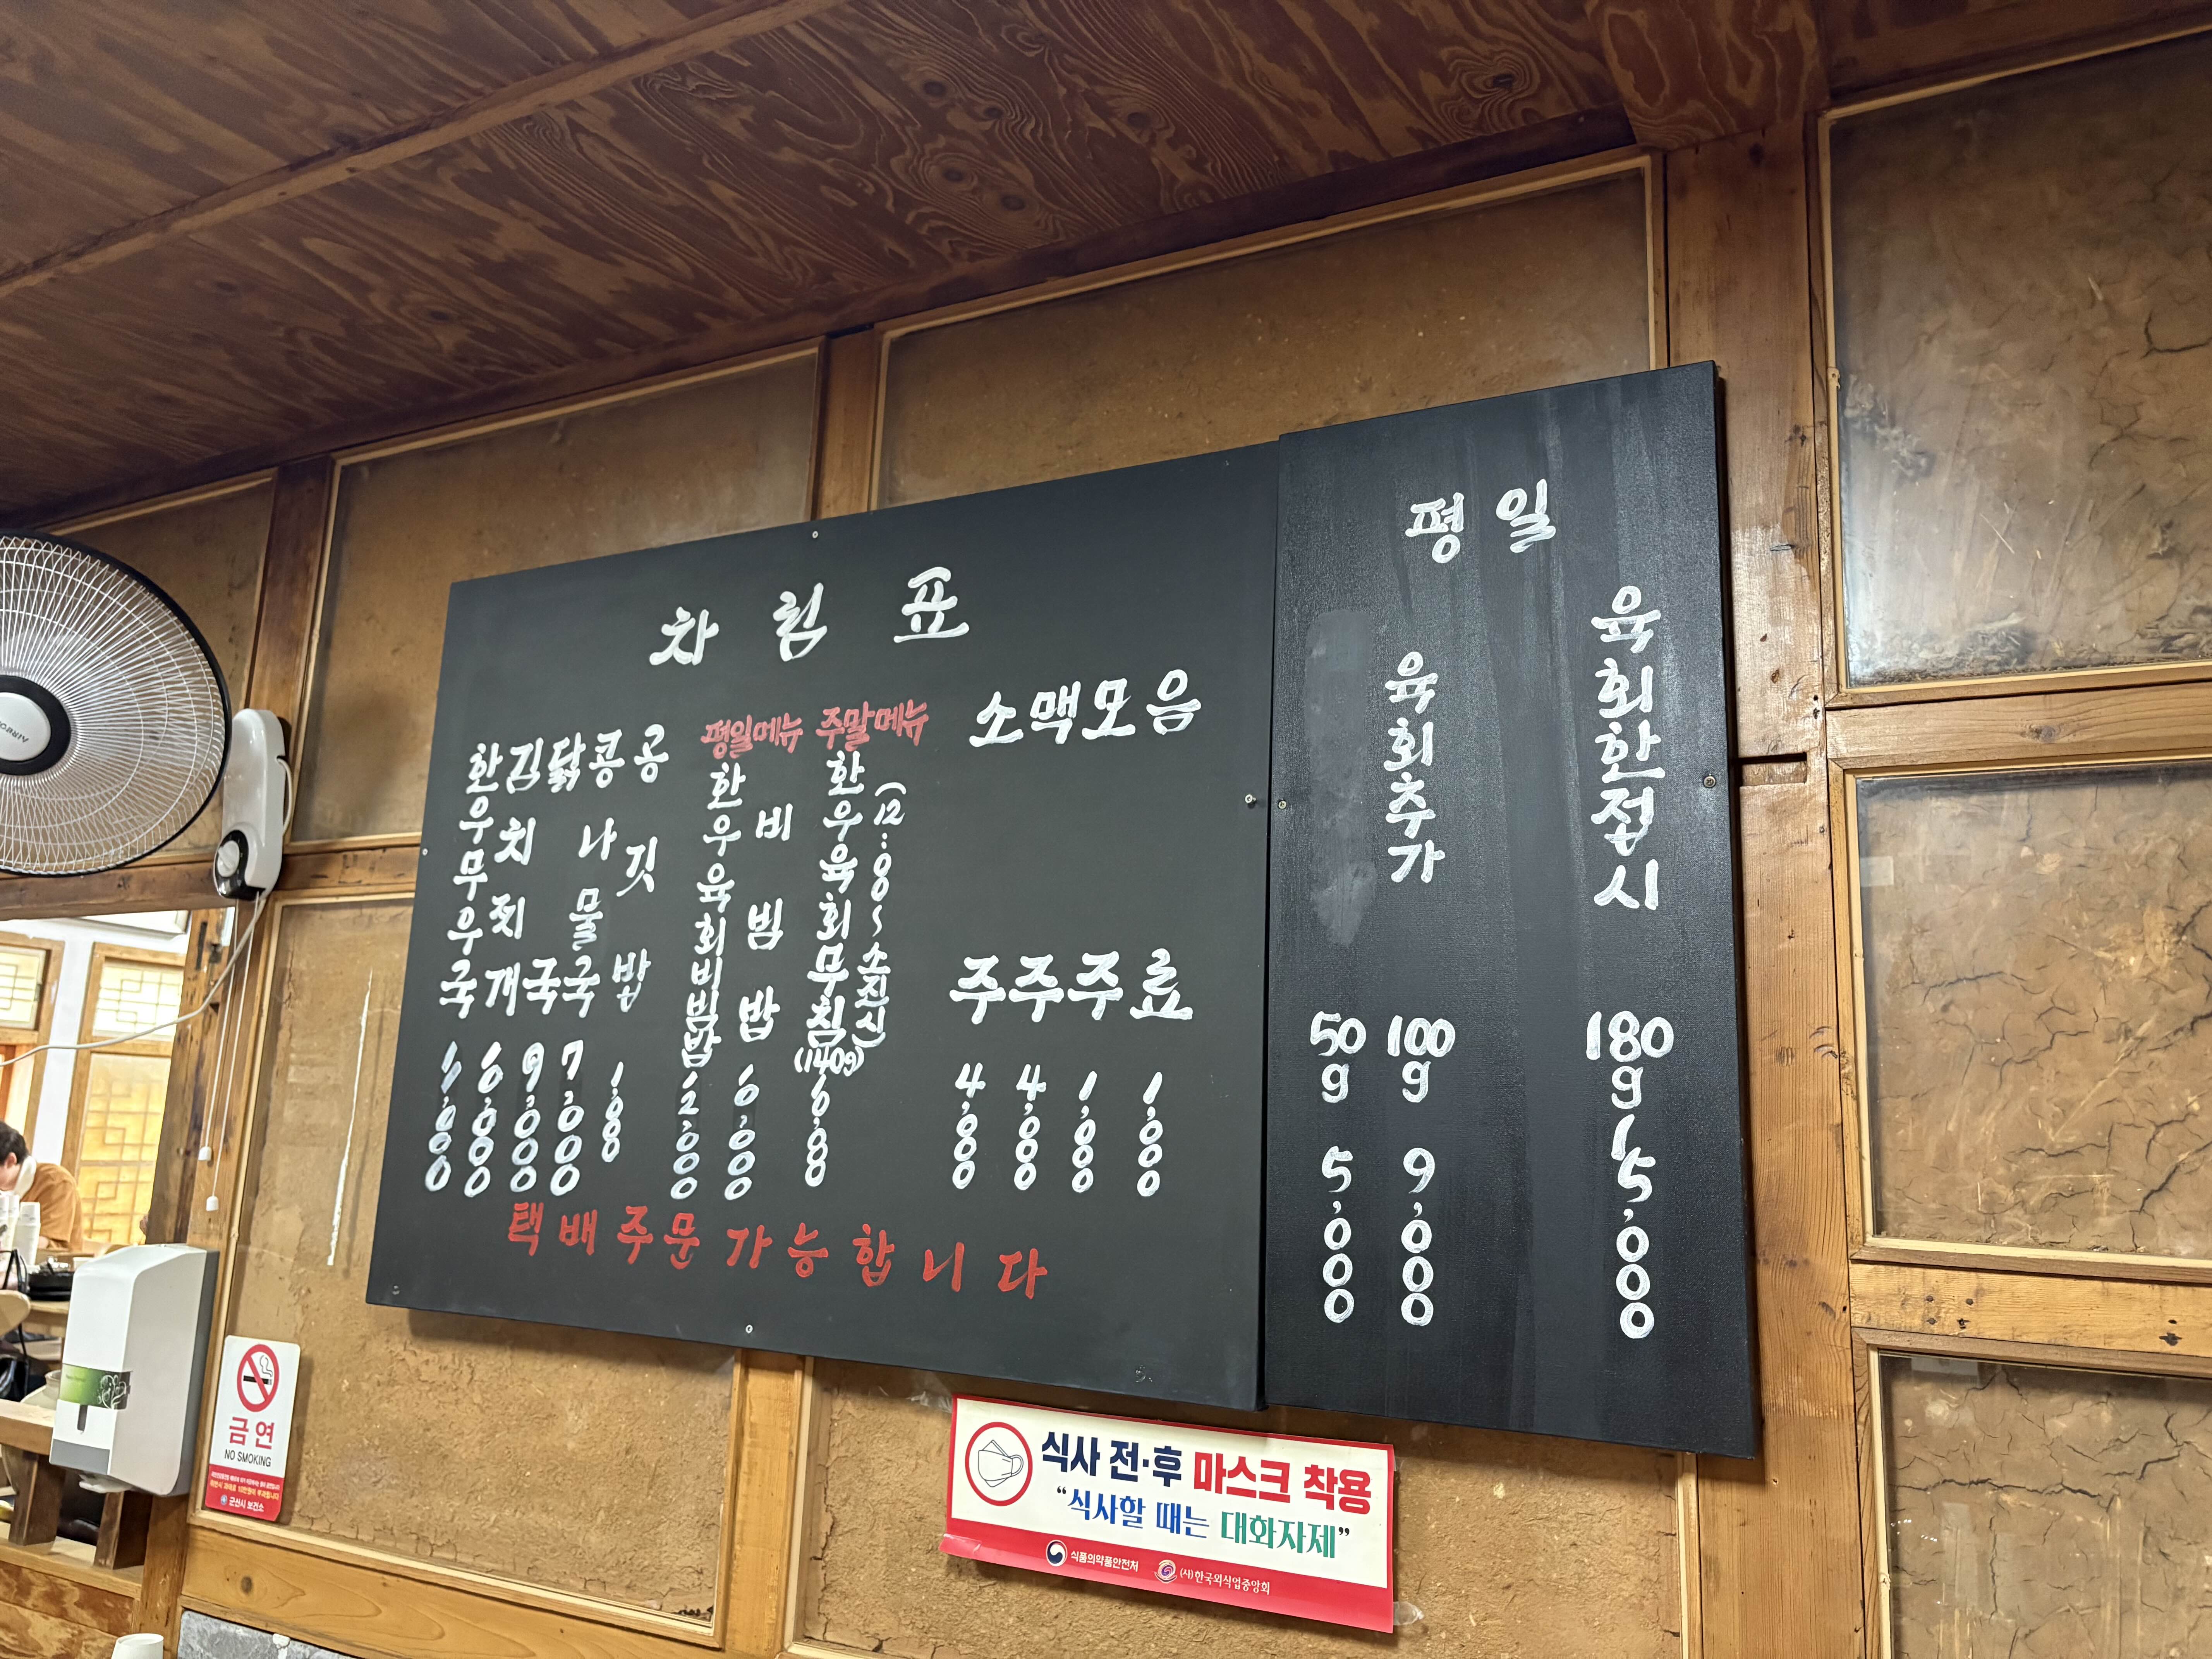 차림표
한우무우국 11,000
김치찌개 10,000
닭국 9,000
콩나물국 7,000
공깃밥 1,000
평일메뉴
한우육회비빔밥 12,000
비빔밥 10,000
주말메뉴
한우육회무침(140g)
(12:00~소진시)
소주 4,000
맥주 4,000
모주 1,000
음료 1,000
택배주문가능합니다
평일
50g 5,000
육회추가 100g 9,000
육회한접시 180g 15,000
금연
NO SMOKING
군산시 보건소
식사 전·후 마스크 착용
“식사할 때는 대화자제”
식품의약품안전처 (사)한국외식업중앙회